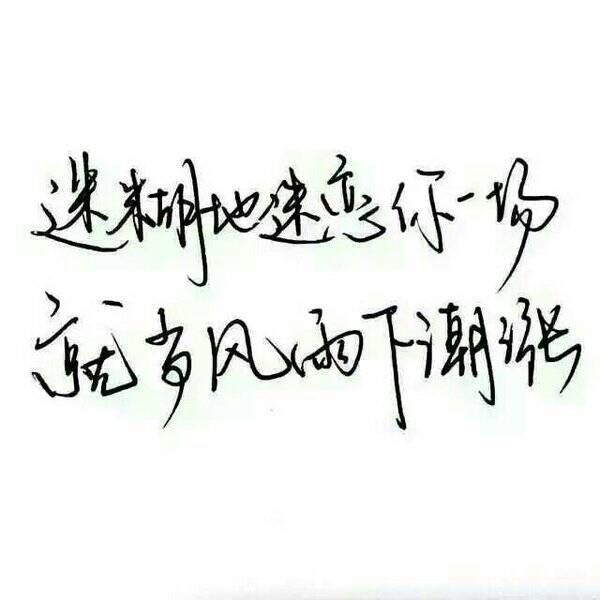 迷糊地迷恋你一场
就当风雨下潮涨